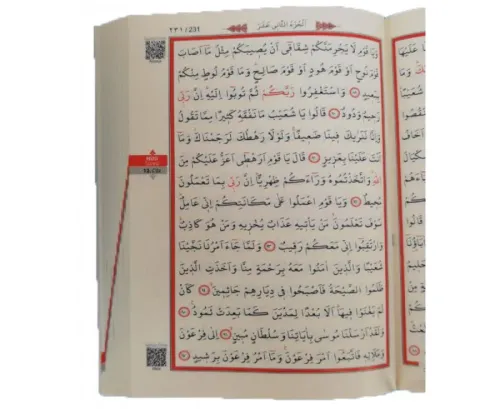 ٢٣١ / 231
اَلْجُزْءُ الثَّانِي عَشَرَ
وَيَا قَوْمِ لَا يَجْرِمَنَّكُمْ شِقَاقِٓي اَنْ يُصِيبَكُمْ مِثْلُ مَٓا اَصَابَ
قَوْمَ نُوحٍ اَوْ قَوْمَ هُودٍ اَوْ قَوْمَ صَالِحٍ وَمَا قَوْمُ لُوطٍ مِنْكُمْ
بِبَعِيدٍ ﴿٨٩﴾ وَاسْتَغْفِرُوا رَبَّكُمْ ثُمَّ تُوبُٓوا اِلَيْهِ اِنَّ رَبِّي
رَحِيمٌ وَدُودٌ ﴿٩٠﴾ قَالُوا يَا شُعَيْبُ مَا نَفْقَهُ كَثِيرًا مِمَّا تَقُولُ
وَاِنَّا لَنَرٰيكَ فِينَا ضَعِيفًا وَلَوْلَا رَهْطُكَ لَرَجَمْنَاكَ وَمَٓا
اَنْتَ عَلَيْنَا بِعَزِيزٍ ﴿٩١﴾ قَالَ يَا قَوْمِ اَرَهْطِٓي اَعَزُّ عَلَيْكُمْ مِنَ
اللّٰهِ وَاتَّخَذْتُمُوهُ وَرَٓاءَكُمْ ظِهْرِيًّا اِنَّ رَبِّي بِمَا تَعْمَلُونَ
مُحِيطٌ ﴿٩٢﴾ وَيَا قَوْمِ اعْمَلُوا عَلٰى مَكَانَتِكُمْ اِنِّي عَامِلٌ
سَوْفَ تَعْلَمُونَ مَنْ يَأْتِيهِ عَذَابٌ يُخْزِيهِ وَمَنْ هُوَ كَاذِبٌ
وَارْتَقِبُٓوا اِنِّي مَعَكُمْ رَقِيبٌ ﴿٩٣﴾ وَلَمَّا جَٓاءَ اَمْرُنَا نَجَّيْنَا
شُعَيْبًا وَالَّذِينَ اٰمَنُوا مَعَهُ بِرَحْمَةٍ مِنَّا وَاَخَذَتِ الَّذِينَ
ظَلَمُوا الصَّيْحَةُ فَاَصْبَحُوا فِي دِيَارِهِمْ جَاثِمِينَ ﴿٩٤﴾ كَاَنْ
لَمْ يَغْنَوْا فِيهَا اَلَا بُعْدًا لِمَدْيَنَ كَمَا بَعِدَتْ ثَمُودُ ﴿٩٥﴾
وَلَقَدْ اَرْسَلْنَا مُوسٰى بِاٰيَاتِنَا وَسُلْطَانٍ مُبِينٍ ﴿٩٦﴾ اِلٰى فِرْعَوْنَ
وَمَلَئِهِ فَاتَّبَعُٓوا اَمْرَ فِرْعَوْنَ وَمَٓا اَمْرُ فِرْعَوْنَ بِرَشِيدٍ ﴿٩٧﴾